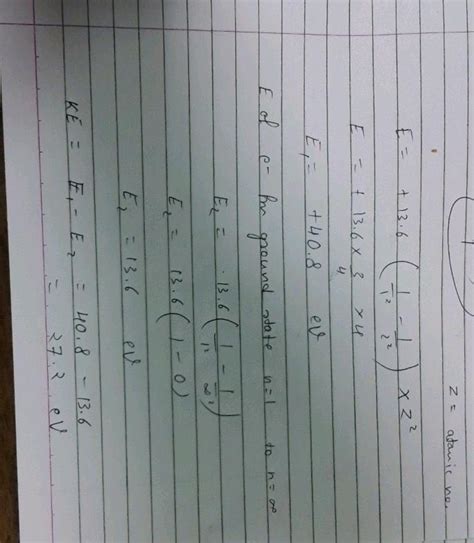 Z = atomic no.
E = + 13.6 ( 1/1² - 1/2² ) × Z²
E = + 13.6 × 3/4 × 4
E₁ = +40.8 eV
E of e⁻ in ground state n=1 to n=∞
E₂ = .13.6 ( 1/1² - 1/∞² )
E₂ = 13.6 ( 1 - 0 )
E₂ = 13.6 eV
KE = E₁ - E₂ = 40.8 - 13.6
= 27.2 eV